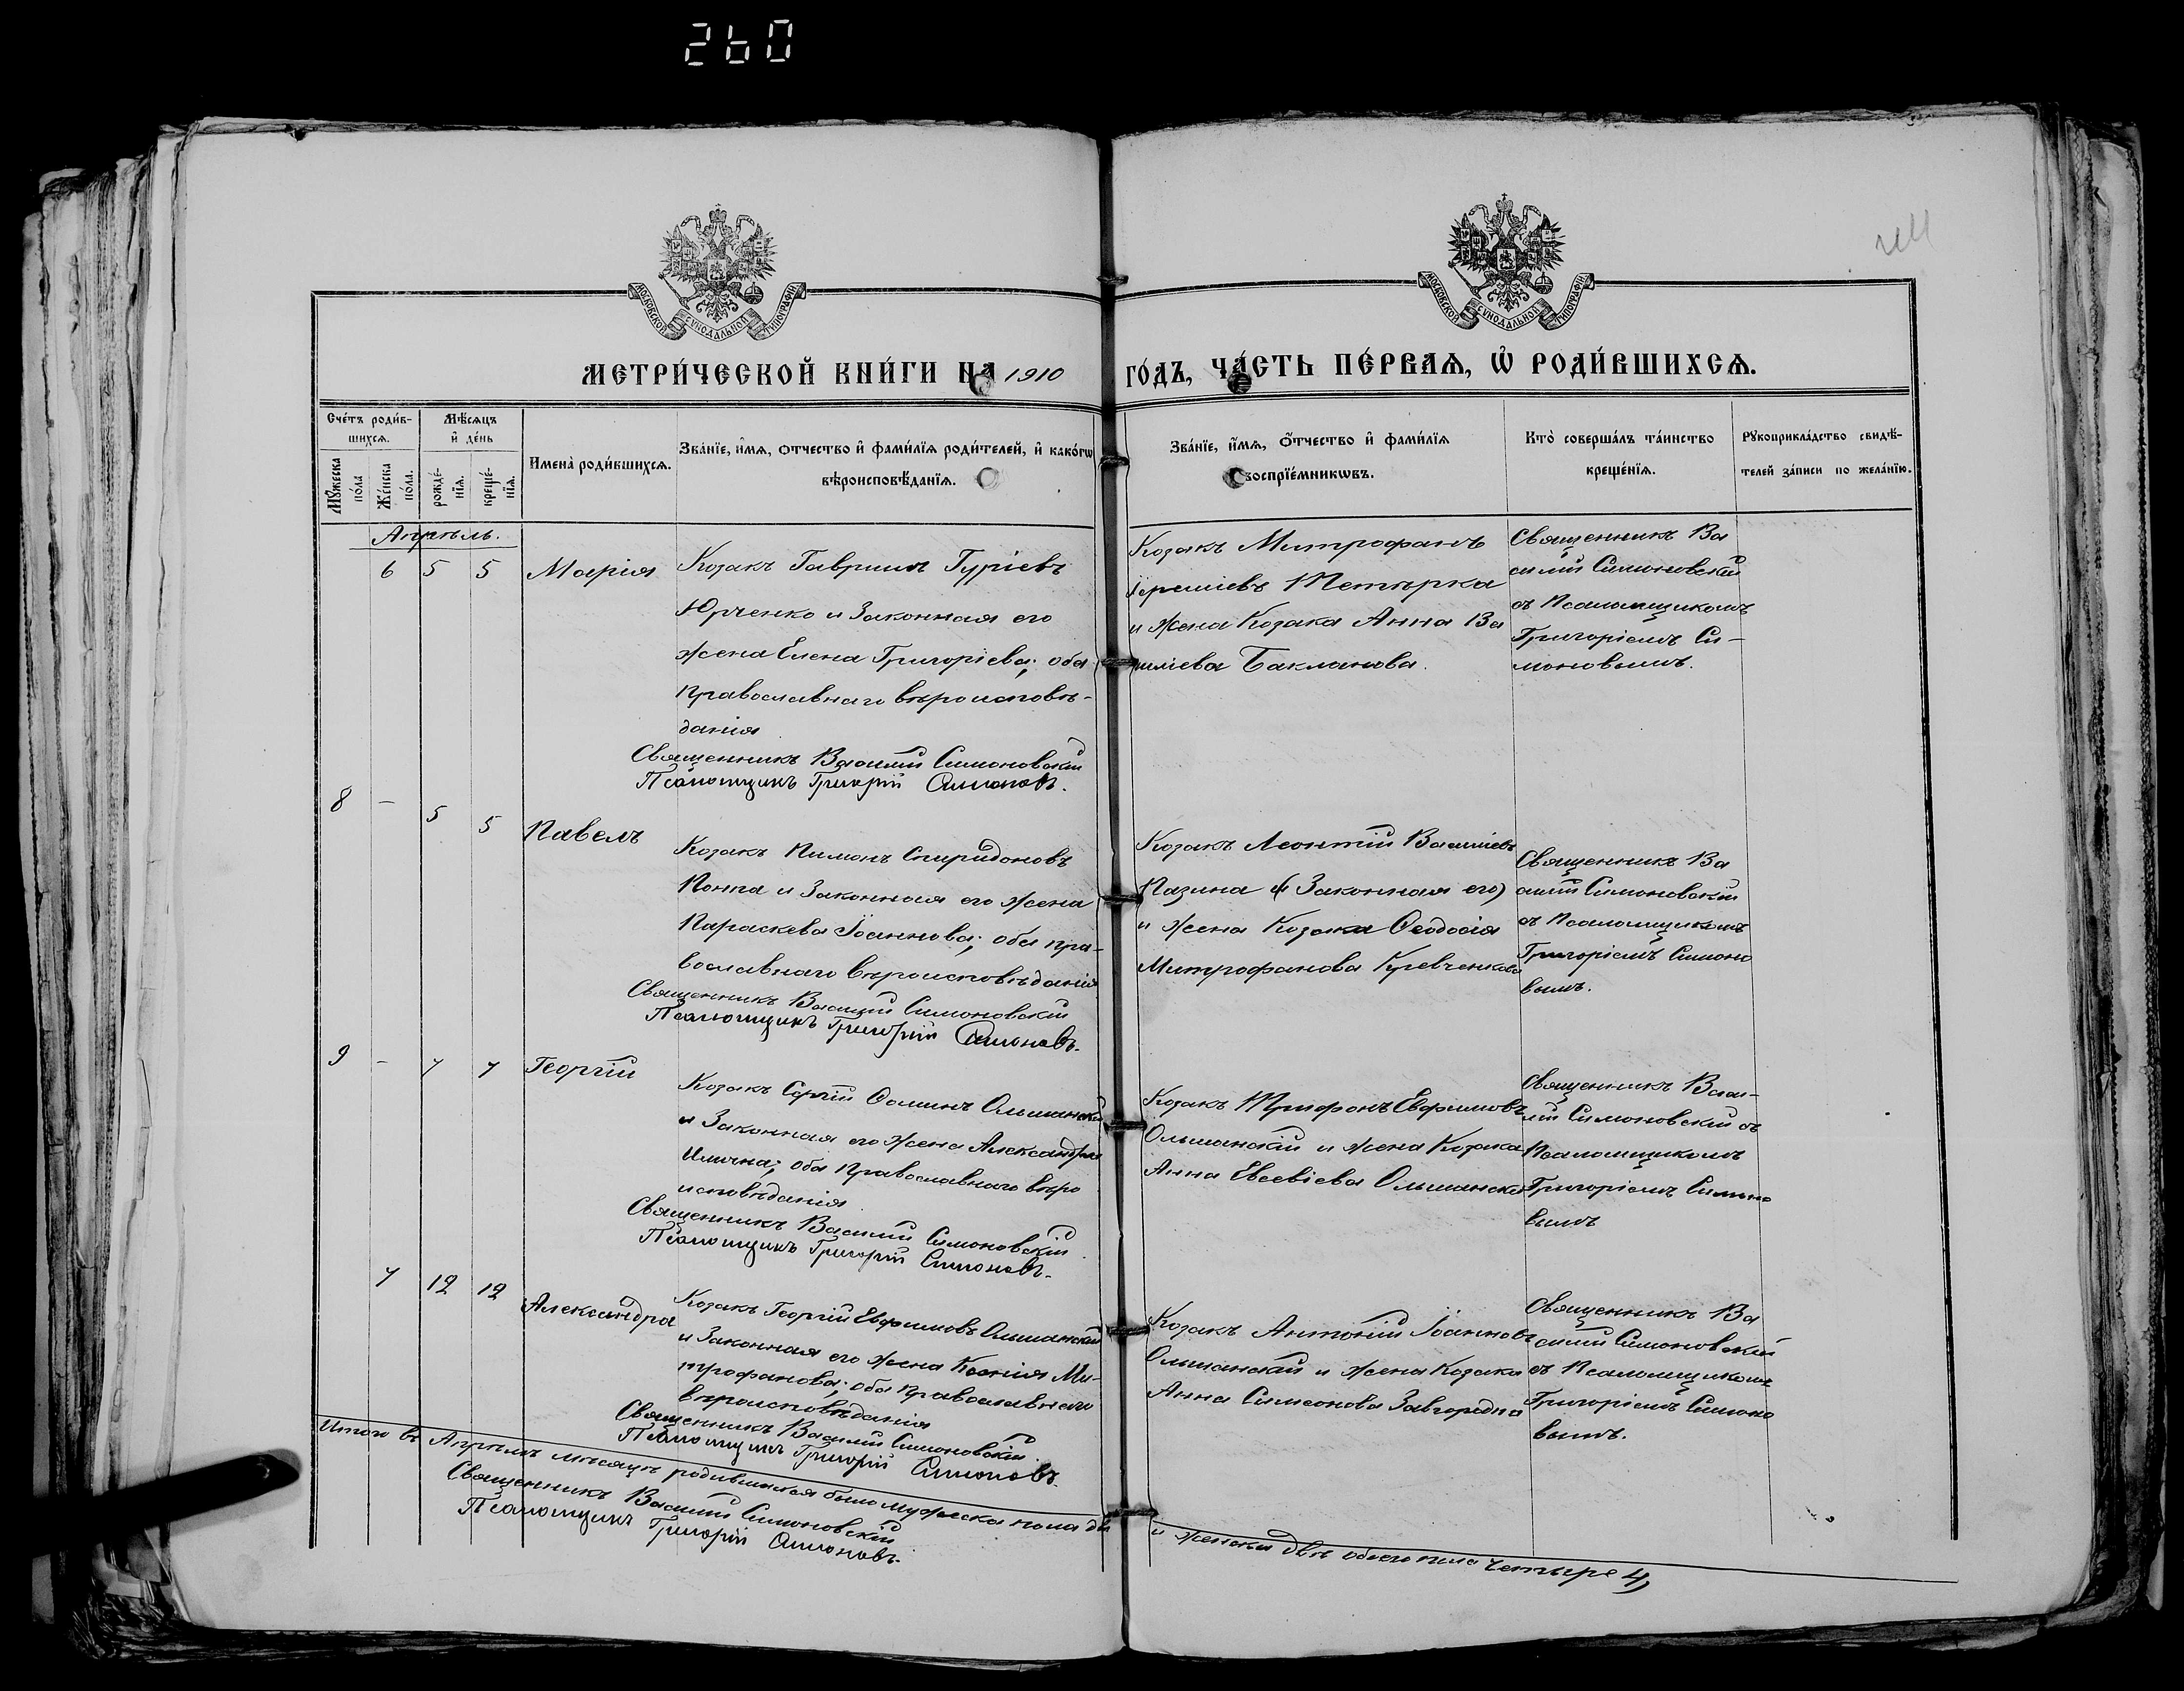 260
МОСКОВСКОЙ СѴНОДАЛЬНОЙ ТИПОГРАФІИ
МОСКОВСКОЙ СѴНОДАЛЬНОЙ ТИПОГРАФІИ
МЕТРИ́ЧЕСКОЙ КНИ́ГИ НА 1910 ГО́ДЪ, ЧА́СТЬ ПЕ́РВАѦ, Ѡ҆ РОДИ́ВШИХСѦ.
Сче́тъ роди́в-
шихсѧ.
Мѣ́сѧцъ
и҆ де́нь
Мꙋ́жеска
по́ла
Же́нска
по́ла.
рожде́-
нїѧ.
креще́-
нїѧ.
Имена̀ роди́вшихсѧ.
Зва́нїе, и҆́мѧ, ѻтчество и҆ фами́лїѧ роди́телей, и҆ како́гѡ
вѣроисповѣ́данїѧ.
Зва́нїе, и҆́мѧ, ѻ҆́тчество и҆ фами́лїѧ
воспрїе́мникѡвъ.
Кто̀ соверша́лъ та́инство
креще́нїѧ.
Рꙋкоприкла́дство свидѣ́-
телей за́писи по жела́нїю.
Апрѣль.
6 5 5 Марія
Козакъ Гавриилъ Гуріевъ
Юрченко и Законная его
жена Елена Григоріева; оба
православнаго вѣроисповѣ-
данія
Священникъ Василій Симоновскій
Псаломщикъ Григорій Симоновъ.
Козакъ Митрофанъ
Іереміевъ Тетерка
и жена Козака Анна Ва
силіева Бакланова.
Священникъ Ва
силій Симоновскій
съ Псаломщикомъ
Григоріемъ Си-
моновымъ.
8 - 5 5 Павелъ
Козакъ Пименъ Спиридоновъ
Попка и Законная его жена
Параскева Іоаннова; оба пра-
вославнаго вѣроисповѣданія
Священникъ Василій Симоновскій
Псаломщикъ Григорій Симоновъ.
Козакъ Леонтій Василіевъ
Пазина (и Законная его)
и жена Козака Ѳеодосія
Митрофанова Кревченкова
Священникъ Ва
силій Симоновскій
съ Псаломщикомъ
Григоріемъ Симоно
вымъ.
9 - 7 7 Георгій
Козакъ Сергій Ѳоминъ Ольшанскій
и Законная его жена Александра
Илична; оба Православнаго вѣро
исповѣданія
Священникъ Василій Симоновскій
Псаломщикъ Григорій Симоновъ.
Козакъ Трифонъ Евфимовъ
Ольшанскій и жена Козака
Анна Евсевіева Ольшанска
Священникъ Васи-
лій Симоновскій съ
Псаломщикомъ
Григоріемъ Симоно
вымъ
7 12 12 Александра
Козакъ Георгій Евфимовъ Ольшанскій
и Законная его жена Ксенія Ми-
трофанова; оба православнаго
вѣроисповѣданія
Священникъ Василій Симоновскій.
Псаломщикъ Григорій Симоновъ.
Козакъ Антоній Іоанновъ
Ольшанскій и жена Козака
Анна Симеонова Завгородна
Священникъ Ва
силій Симоновскій
съ Псаломщикомъ
Григоріемъ Симоно
вымъ.
Итого въ Апрѣлѣ мѣсяцѣ родившихся было мужеска пола два
и женска двѣ обоего пола четыре 4,
Священникъ Василій Симоновскій
Псаломщикъ Григорій Симоновъ.